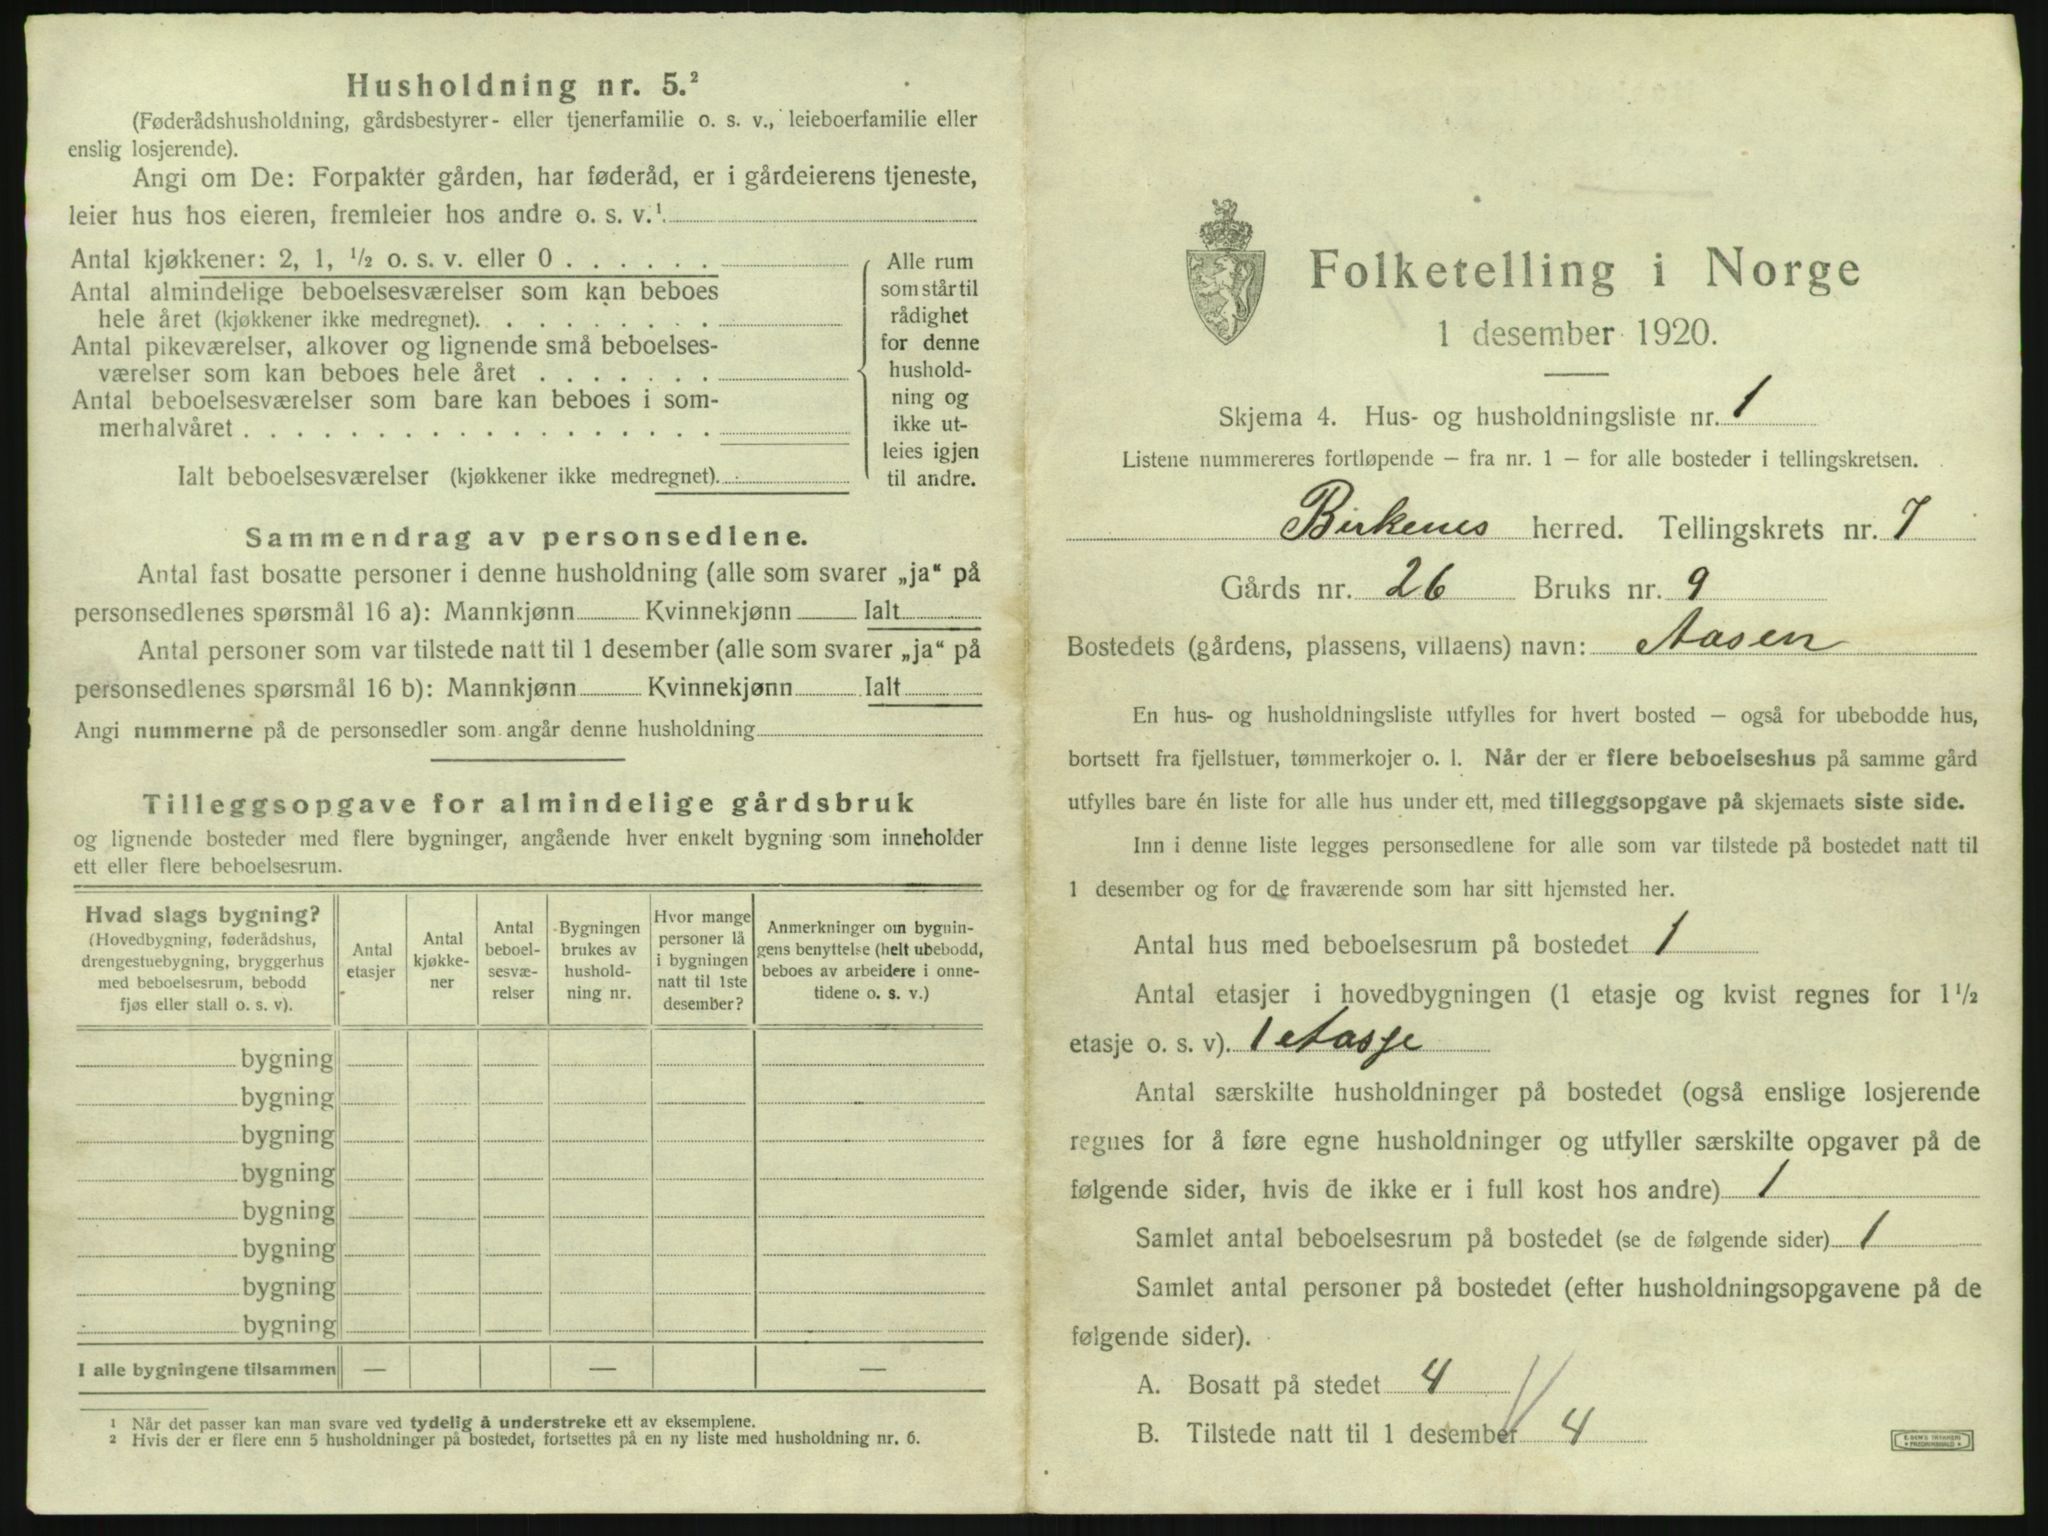 Husholdning nr. 5.²
(Føderådshusholdning, gårdsbestyrer- eller tjenerfamilie o. s. v., leieboerfamilie eller
enslig losjerende).
Angi om De: Forpakter gården, har føderåd, er i gårdeierens tjeneste,
leier hus hos eieren, fremleier hos andre o. s. v.¹
Antal kjøkkener: 2, 1, ½ o. s. v. eller 0 . . . . . .
Antal almindelige beboelsesværelser som kan beboes
hele året (kjøkkener ikke medregnet). . . . . . . . .
Antal pikeværelser, alkover og lignende små beboelses-
værelser som kan beboes hele året . . . . . . .
Antal beboelsesværelser som bare kan beboes i som-
merhalvåret . . . . . . . . . . . . . . . . . .
Ialt beboelsesværelser (kjøkkener ikke medregnet).
Alle rum
som står til
rådighet
for denne
hushold-
ning og
ikke ut-
leies igjen
til andre.
Sammendrag av personsedlene.
Antal fast bosatte personer i denne husholdning (alle som svarer „ja“ på
personsedlenes spørsmål 16 a): Mannkjønn Kvinnekjønn Ialt
Antal personer som var tilstede natt til 1 desember (alle som svarer „ja“ på
personsedlenes spørsmål 16 b): Mannkjønn Kvinnekjønn Ialt
Angi nummerne på de personsedler som angår denne husholdning
Tilleggsopgave for almindelige gårdsbruk
og lignende bosteder med flere bygninger, angående hver enkelt bygning som inneholder
ett eller flere beboelsesrum.
Hvad slags bygning?
(Hovedbygning, føderådshus,
drengestuebygning, bryggerhus
med beboelsesrum, bebodd
fjøs eller stall o. s. v).
Antal
etasjer
Antal
kjøkke-
ner
Antal
beboel-
sesvæ-
relser
Bygningen
brukes av
hushold-
ning nr.
Hvor mange
personer lå
i bygningen
natt til 1ste
desember?
Anmerkninger om bygnin-
gens benyttelse (helt ubebodd,
beboes av arbeidere i onne-
tidene o. s. v.)
bygning
bygning
bygning
bygning
bygning
bygning
bygning
bygning
I alle bygningene tilsammen — — —
¹ Når det passer kan man svare ved tydelig å understreke ett av eksemplene.
² Hvis der er flere enn 5 husholdninger på bostedet, fortsettes på en ny liste med husholdning nr. 6.
Folketelling i Norge
1 desember 1920.
Skjema 4. Hus- og husholdningsliste nr. 1
Listene nummereres fortløpende — fra nr. 1 — for alle bosteder i tellingskretsen.
Birkenes herred. Tellingskrets nr. 7
Gårds nr. 26 Bruks nr. 9
Bostedets (gårdens, plassens, villaens) navn: Aasen
En hus- og husholdningsliste utfylles for hvert bosted — også for ubebodde hus,
bortsett fra fjellstuer, tømmerkojer o. l. Når der er flere beboelseshus på samme gård
utfylles bare én liste for alle hus under ett, med tilleggsopgave på skjemaets siste side.
Inn i denne liste legges personsedlene for alle som var tilstede på bostedet natt til
1 desember og for de fraværende som har sitt hjemsted her.
Antal hus med beboelsesrum på bostedet 1
Antal etasjer i hovedbygningen (1 etasje og kvist regnes for 1½
etasje o. s. v). 1 etasje
Antal særskilte husholdninger på bostedet (også enslige losjerende
regnes for å føre egne husholdninger og utfyller særskilte opgaver på de
følgende sider, hvis de ikke er i full kost hos andre) 1
Samlet antal beboelsesrum på bostedet (se de følgende sider) 1
Samlet antal personer på bostedet (efter husholdningsopgavene på de
følgende sider).
A. Bosatt på stedet 4
B. Tilstede natt til 1 desember 4